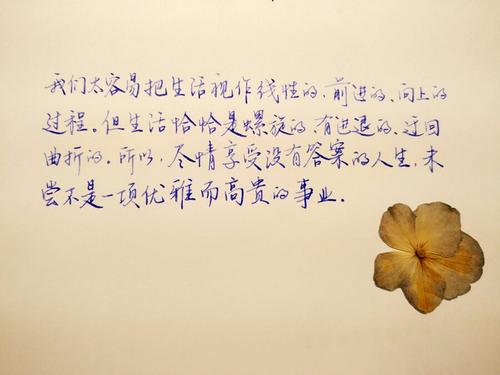 我们太容易把生活视作线性的、前进的、向上的
过程。但生活恰恰是螺旋的、有进退的、迂回
曲折的。所以，尽情享受没有答案的人生，未
尝不是一项优雅而高贵的事业。